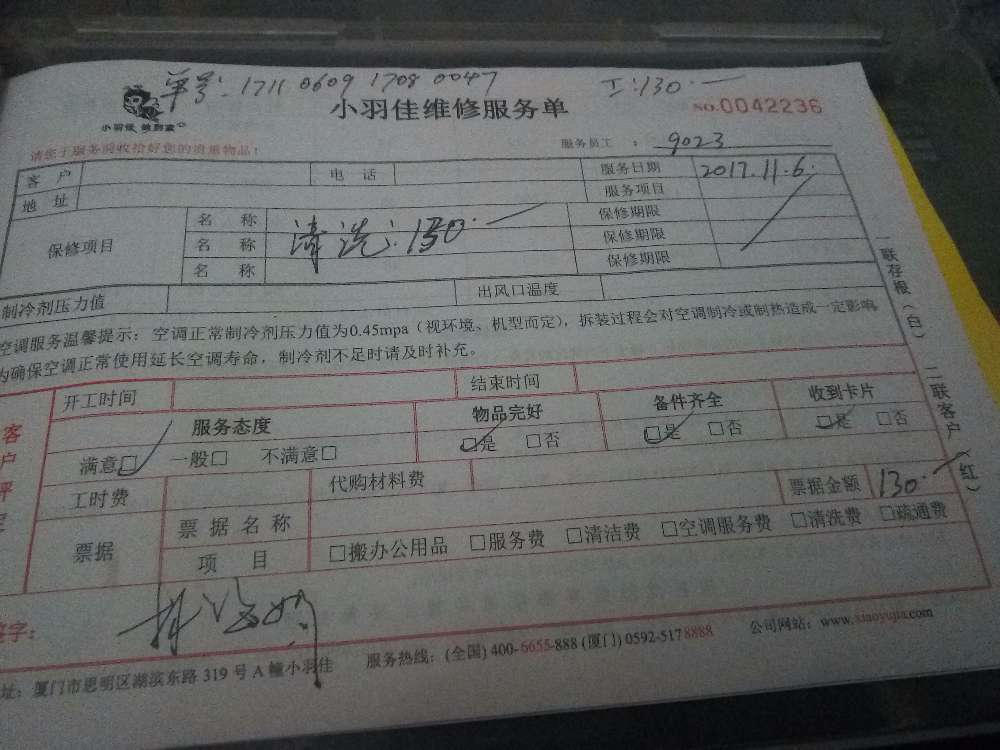 单号:1711 0609 1708 0047 工:130.一
小羽佳维修服务单 NO.0042236
小羽佳
请您于服务前收拾好您的贵重物品! 服务员工 : 9023
客 户 电 话 服务日期 2017.11.6.
地 址 服务项目
保修项目 名 称 清洗:130.一 保修期限
名 称 保修期限
名 称 保修期限
制冷剂压力值 出风口温度
空调服务温馨提示:空调正常制冷剂压力值为0.45mpa(视环境、机型而定),拆装过程会对空调制冷或制热造成一定影响
为确保空调正常使用延长空调寿命,制冷剂不足时请及时补充。
一联存根(白) 二联客户(红)
开工时间 结束时间
客户评定
服务态度 物品完好 备件齐全 收到卡片
满意□ 一般□ 不满意□ □是 □否 □是 □否 □是 □否
工时费 代购材料费 票据金额 130.一
票据 票据名称
项 目 □搬办公用品 □服务费 □清洁费 □空调服务费 □清洗费 □疏通费
签字:
址:厦门市思明区湖滨东路 319 号 A 幢小羽佳 服务热线:(全国) 400-6655-888 (厦门) 0592-5178888 公司网站:www.xiaoyujia.com